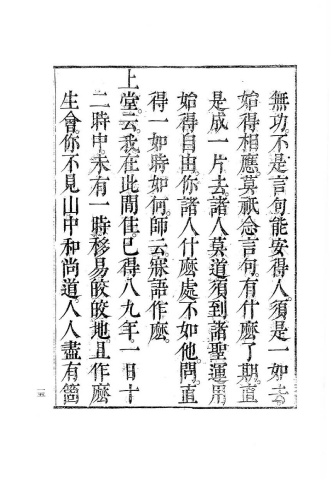 無功。不是言句能安得人。須是一如去。
始得相應。莫祇念言句。有什麼了期。直
是成一片去。諸人莫道須到諸聖運用
始得自由。你諸人什麼處不如他。問。直
得一如時如何。師云。寐語作麼。
上堂云。我在此間住。已得八九年。一日十
二時中。未有一時移易皎皎地。且作麼
生會。你不見山中和尚道。人人盡有箇
五